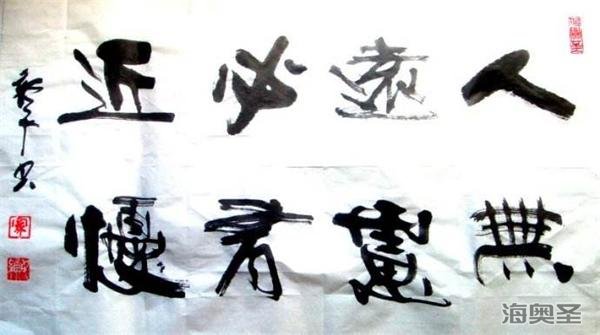 人無
遠慮
必有
近懮
海奥圣